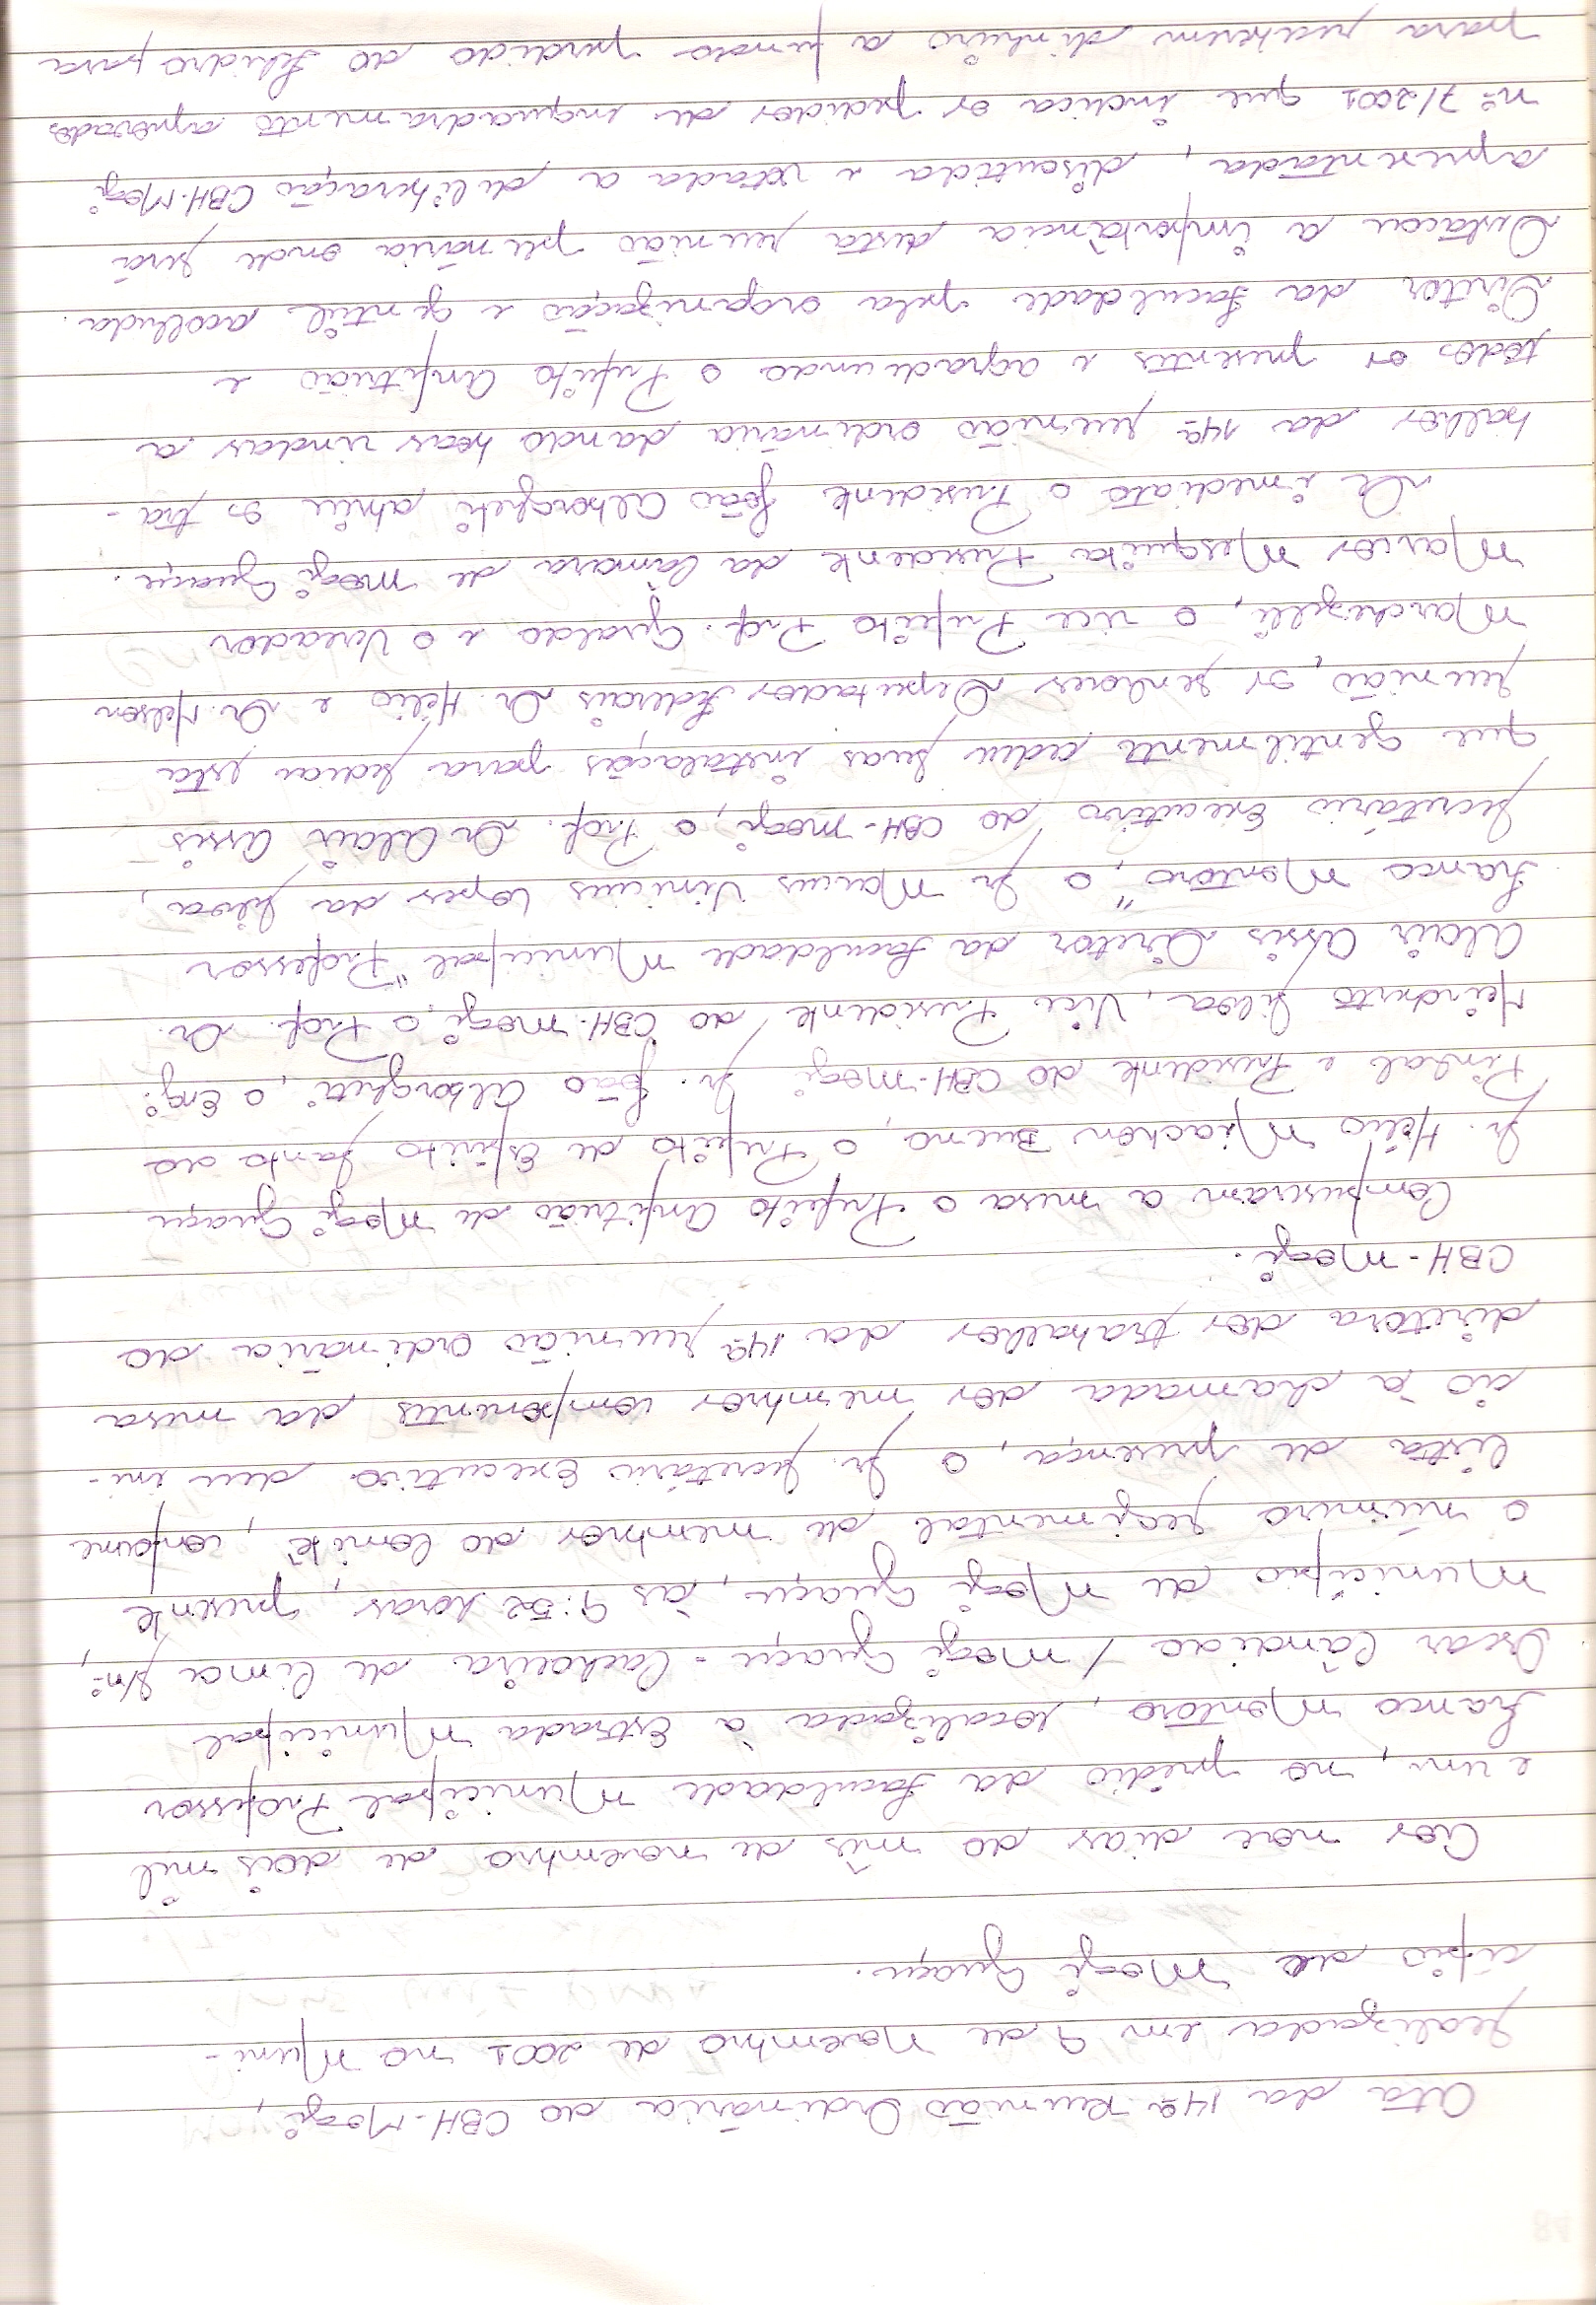 Ata da 14ª Reunião Ordinária do CBH-Mogi,
realizada em 9 de Novembro de 2001 no Muni-
cípio de Mogi Guaçu.
Aos nove dias do mês de novembro de dois mil
e um, no prédio da Faculdade Municipal Professor
Franco Montoro, localizada à Estrada Municipal
Oscar Cândido / Mogi Guaçu - Cachoeira de Cima s/nº,
Município de Mogi Guaçu, às 9:52 horas, presente
o número regimental de membros do Comitê, conforme
lista de presença, o Sr. Secretário Executivo deu iní-
cio à chamada dos membros componentes da mesa
diretora dos trabalhos da 14ª reunião ordinária do
CBH-Mogi.
Compuseram a mesa o Prefeito Anfitrião de Mogi Guaçu
Sr. Hélio Miachon Bueno, o Prefeito de Espírito Santo do
Pinhal e Presidente do CBH-Mogi Sr. João Alborgheti, o Engº.
Neivaldo Silva, Vice Presidente do CBH-Mogi, o Prof. Dr.
Alair Assis Diretor da Faculdade Municipal "Professor
Franco Montoro", o Sr Marcus Vinicius Lopes da Silva,
Secretário Executivo do CBH-Mogi, o Prof. Dr Alair Assis
que gentilmente cedeu suas instalações para sediar esta
reunião, os senhores Deputados Federais Dr. Hélio e Dr. Nelson
Marchezelli, o vice Prefeito Prof. Geraldo e o Vereador
Marcos Mesquita Presidente da Câmara de Mogi Guaçu.
De imediato o Presidente João Alborgheti abriu os tra-
balhos da 14ª reunião ordinária dando boas vindas a
todos os presentes e agradecendo o Prefeito Anfitrião e
Diretor da Faculdade pela organização e gentil acolhida.
Destacou a importância desta reunião plenária onde será
apresentada, discutida e votada a deliberação CBH-Mogi
nº 7/2001 que indica os pedidos de enquadramento aprovados
para receberem dinheiro a fundo perdido do Fehidro para